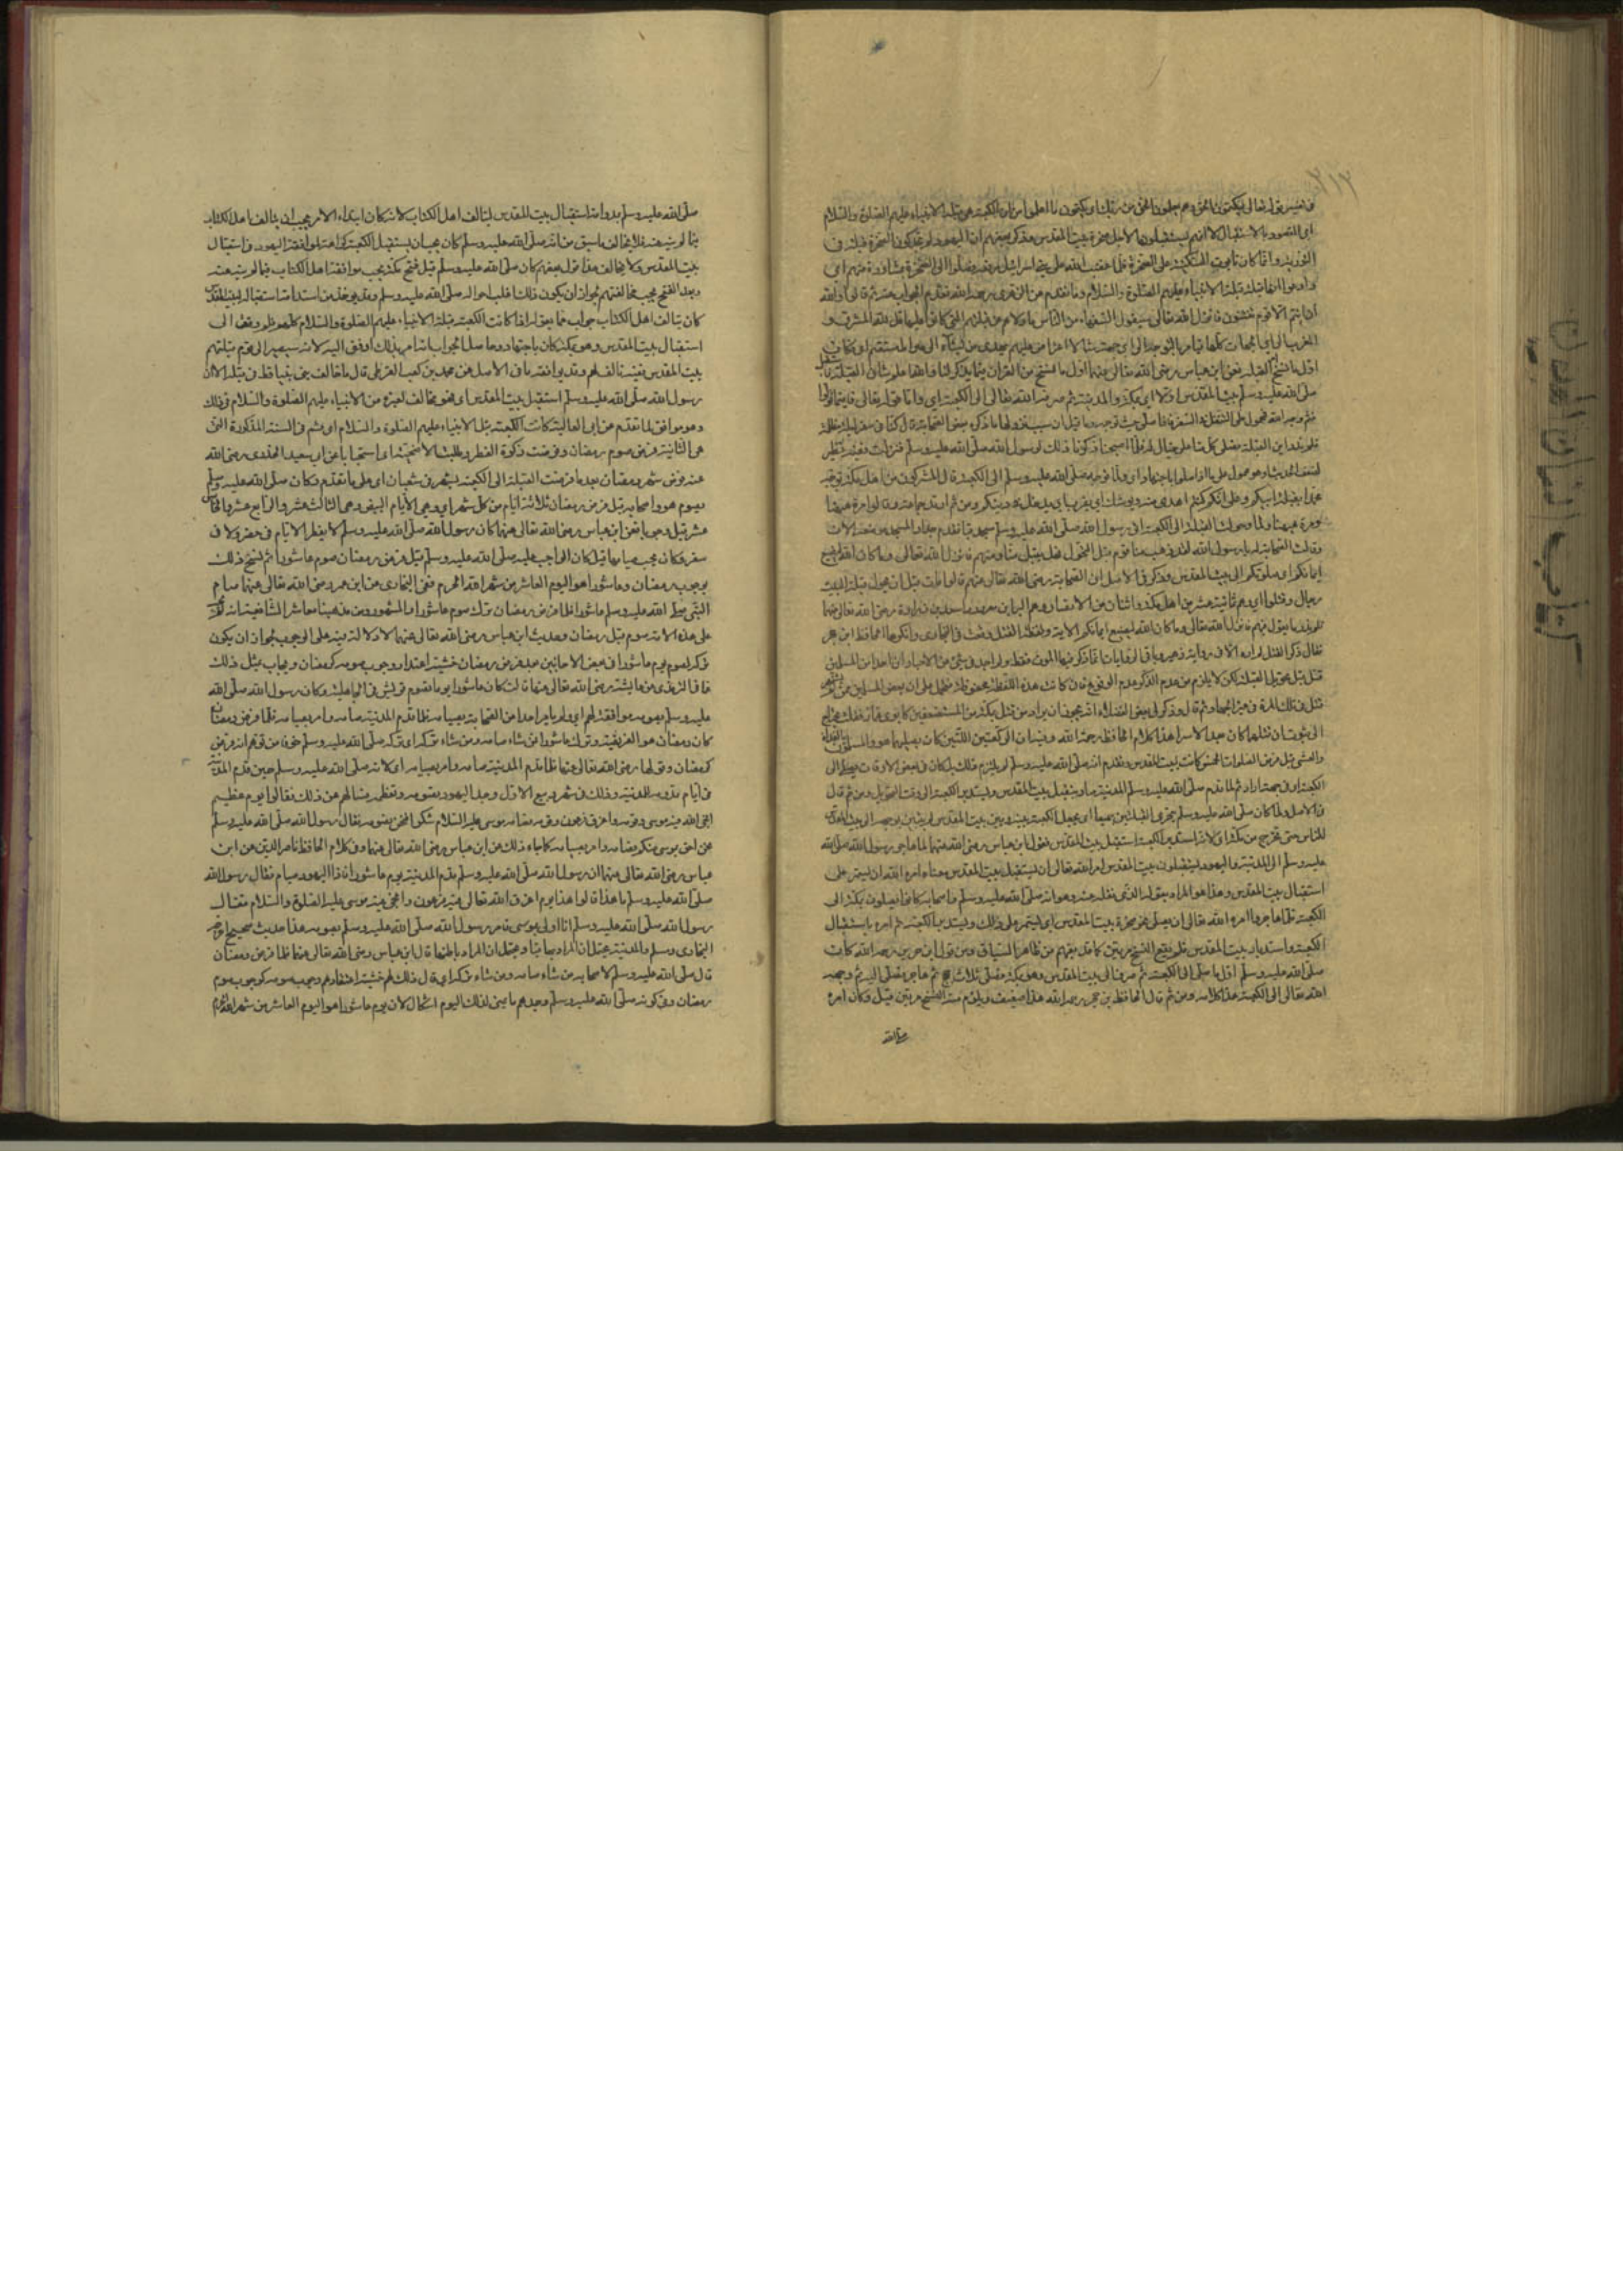 ٢١٣
في تفسير قوله تعالى ليكتمون الحق وهم يعلمون الحق من ربك اي يكتمون ما علموا من ان الكعبة هي قبلة الانبياء عليهم الصلوة والسلام
اي المقصود بالاستقبال لا انهم يستقبلونها لاجل صخرة بيت المقدس وذكر بعضهم ان اليهود لم تجد كون الصخرة قبلة في
التوراة وانما كان تابوت السكينة على الصخرة فلما غضب الله على بني اسرائيل رفعه وصلوا الى الصخرة بمشاورة منهم اي
وادعوا انها قبلة الانبياء عليهم الصلوة والسلام وما تقدم عن الزهري رحمه الله تقدم الجواب عنه ثم قالوا والله
ان انتم الا قوم تفتنون فانزل الله تعالى سيقول السفهاء من الناس ما ولاهم عن قبلتهم التي كانوا عليها قل لله المشرق و
المغرب اي الجهات كلها فيامر بالتوجه الى اي جهة شاء لا اعتراض عليه يهدي من يشاء الى صراط مستقيم اي وكان
اول ما نسخ القبلة فعن ابن عباس رضي الله تعالى عنهما اول ما نسخ من القرآن فيما يذكر لنا والله اعلم شان القبلة فاستقبل
صلى الله عليه وسلم بيت المقدس اولا اي بمكة والمدينة ثم صرفه الله تعالى الى الكعبة اي واما قوله تعالى فاينما تولوا
فثم وجه الله فمحمول على النفل في السفر فاصلى حيث توجه وما قيل ان سبب نزولها ما ذكره بعض الصحابة قال كنا في سفر في ليلة مظلمة
فلم ندر اين القبلة فصلى كل منا على حياله فلما اصبحنا ذكرنا ذلك لرسول الله صلى الله عليه وسلم فنزلت ففيه نظر
لضعف الحديث او هو محمول على ما اذا صلوا باجتهاد اي ولما توجه صلى الله عليه وسلم الى الكعبة قال المشركون من اهل مكة توجه
محمد بقبلته اليكم وعلم انكم كنتم اهدى منه ويوشك اي يقرب ان يدخل في دينكم ومن ثم ارتد جماعة وقالوا مرة ههنا
ومرة ههنا ولما حولت القبلة الى الكعبة اتى رسول الله صلى الله عليه وسلم مسجد قبا فقدم جدار المسجد موضعه الان
وقالت الصحابة له يا رسول الله لقد ذهب منا قوم قبل التحول فهل يقبل منا ومنهم فانزل الله تعالى وما كان الله ليضيع
ايمانكم اي صلوتكم الى بيت المقدس وذكر في الاصل ان الصحابة رضي الله تعالى عنهم قالوا مات قبل ان تحول قبلة البيت
رجال وقتلوا اي وهم ثمانية عشر من اهل مكة واثنان من الانصار وهما البراء بن معرور واسعد بن زرارة رضي الله تعالى عنهما
فلم ندر ما نقول فيهم فانزل الله تعالى وما كان الله ليضيع ايمانكم الاية ولفظ القتل وقعت في البخاري وانكرها الحافظ ابن حجر
فقال ذكر القتل لم اره الا في رواية زهير وباقي الروايات انما ذكر فيها الموت فقط ولم اجد في شيء من الاخبار ان احدا من المسلمين
قتل قبل تحويل القبلة لكن لا يلزم من عدم الذكر عدم الوقوع فان كانت هذه اللفظة محفوظة فتحمل على ان بعض المسلمين ممن لم يشتهر
قتل في تلك المدة في غير الجهاد ثم قال وذكر لي بعض الفضلاء انه يجوز ان يراد من قتل بمكة من المستضعفين كابوي عمار فقلت يحتاج
الى ثبوت ان قتلهما كان بعد الاسراء هذا كلام الحافظ رحمه الله وفيه ان الركعتين اللتين كان يصليهما هو والمسلمون بالغداة
والعشي قبل فرض الصلوات الخمس كانت لبيت المقدس وتقدم انه صلى الله عليه وسلم لم يلتزم ذلك بل كان في بعض الاوقات يصلي الى
الكعبة في اي جهة اراد ثم لما قدم صلى الله عليه وسلم المدينة صار يستقبل بيت المقدس ويستدبر الكعبة الى وقت التحويل ومن ثم قال
في الاصل ولما كان صلى الله عليه وسلم يتحرى القبلتين جميعا اي يجعل الكعبة بينه وبين بيت المقدس لم يتبين توجهه الى بيت المقدس
للناس حتى خرج من مكة اي لانه استدبر الكعبة استقبل بيت المقدس فقول ابن عباس رضي الله عنهما لما هاجر رسول الله صلى الله
عليه وسلم الى المدينة واليهود يستقبلون بيت المقدس امر الله تعالى ان يستقبل بيت المقدس معناه امره الله ان يستمر على
استقبال بيت المقدس وهذا هو المراد بقوله الذي نقله عنه وهو انه صلى الله عليه وسلم واصحابه كانوا يصلون بمكة الى
الكعبة فلما هاجروا امره الله تعالى ان يصلي نحو صخرة بيت المقدس اي يستمر على ذلك ويستدبر الكعبة ثم امره باستقبال
الكعبة واستدبار بيت المقدس فلم يقع النسخ مرتين كما قد يفهم من ظاهر السياق ومن قول ابن جرير رحمه الله كانت
صلى الله عليه وسلم اول ما صلى الى الكعبة ثم صرف الى بيت المقدس وهو بمكة فصلى ثلاث حجج ثم هاجر فصلى اليه ثم وجهه
الله تعالى الى الكعبة هذا كلامه ومن ثم قال الحافظ ابن حجر رحمه الله هذا ضعيف ويلزم منه النسخ مرتين قيل وكان امره
صلى الله
صلى الله عليه وسلم بدوامه استقبال بيت المقدس ليتالف اهل الكتاب لانه كان ابتداء الامر يحب ان يتالف اهل الكتاب
فيما لم ينه عنه فلا يخالف ما سبق من انه صلى الله عليه وسلم كان يحب ان يستقبل الكعبة كراهة لموافقة اليهود في استقبال
بيت المقدس ولا يخالف هذا قول بعضهم كان صلى الله عليه وسلم قبل فتح مكة يحب موافقة اهل الكتاب فيما لم ينه عنه
وبعد الفتح يحب مخالفتهم لجواز ان يكون ذلك اغلب احواله صلى الله عليه وسلم وقد يؤخذ من استدامة استقباله لبيت المقدس
كان يتالف اهل الكتاب جواب عما يقال اذا كانت الكعبة قبلة الانبياء عليهم الصلوة والسلام كلهم فلم وقف الى
استقبال بيت المقدس وهو بمكة كان باجتهاد وحاصل الجواب انه امر بذلك او فوق اليه لانه سيصير الى قوم قبلتهم
بيت المقدس ففيه تالف لهم وقد يوافقه ما في الاصل عن محمد بن كعب القرظي قال ما خالف نبي نبيا قط في قبلة الا ان
رسول الله صلى الله عليه وسلم استقبل بيت المقدس اي فهو مخالف لغيره من الانبياء عليهم الصلوة والسلام في ذلك
وهو موافق لما تقدم عن ابي العالية كانت الكعبة قبلة الانبياء عليهم الصلوة والسلام اي ثم في السنة المذكورة التي
هي الثانية فرض صوم رمضان وفرضت زكوة الفطر وطلبت الاضحية اي استحبابا عن ابي سعيد الخدري رضي الله
عنه فرض شهر رمضان بعد ما فرضت القبلة الى الكعبة بشهر في شعبان اي على ما تقدم فكان صلى الله عليه وسلم
يصوم هو واصحابه قبل فرض رمضان ثلاثة ايام من كل شهر اي وهي الايام البيض وهي الثالث عشر والرابع عشر والخامس
عشر قيل وجوبا فعن ابن عباس رضي الله تعالى عنهما كان رسول الله صلى الله عليه وسلم لا يفطر الايام في حضر ولا في
سفر وكان يحب صيامها قيل كان الواجب عليه صلى الله عليه وسلم قبل فرض رمضان صوم عاشوراء ثم نسخ ذلك
بوجوب رمضان وعاشوراء هو اليوم العاشر من شهر الله المحرم ففي البخاري عن ابن عمر رضي الله تعالى عنهما صام
النبي صلى الله عليه وسلم عاشوراء فلما فرض رمضان ترك صوم عاشوراء والمشهور من مذهبنا معاشر الشافعية انه لم يجب
على هذه الامة صوم قبل رمضان وحديث ابن عباس رضي الله تعالى عنهما لا دلالة فيه على الوجوب لجواز ان يكون
تركه لصوم يوم عاشوراء في بعض الاحايين بعد فرض رمضان خشية اعتقاد وجوب صومه كرمضان ويجاب بمثل ذلك
عما في الترمذي عن عائشة رضي الله تعالى عنها قالت كان عاشوراء يوما تصومه قريش في الجاهلية وكان رسول الله صلى الله
عليه وسلم يصومه موافقة لهم اي ولم يامر احدا من الصحابة بصيامه فلما قدم المدينة صامه وامر بصيامه فلما فرض رمضان
كان رمضان هو الفريضة وترك عاشوراء فمن شاء صامه ومن شاء تركه اي تركه صلى الله عليه وسلم خوفا من توهم انه فرض
كرمضان وقولها رضي الله تعالى عنها فلما قدم المدينة صامه وامر بصيامه اي لانه صلى الله عليه وسلم حين قدم المدينة
في ايام قدومه المدينة وذلك في شهر ربيع الاول وجد اليهود تصومه وتعظمه فسالهم عن ذلك فقالوا يوم عظيم
انجى الله فيه موسى وقومه واغرق فرعون وقومه فصامه موسى عليه السلام شكرا فنحن نصومه فقال رسول الله صلى الله عليه وسلم
نحن احق بموسى منكم فصامه وامر بصيامه كما جاء ذلك عن ابن عباس رضي الله تعالى عنهما وفي كلام الحافظ ناصر الدين عن ابن
عباس رضي الله تعالى عنهما ان رسول الله صلى الله عليه وسلم قدم المدينة يوم عاشوراء فاذا اليهود صيام فقال رسول الله
صلى الله عليه وسلم ما هذا قالوا هذا يوم اغرق الله تعالى فيه فرعون وانجى فيه موسى عليه الصلوة والسلام فقال
رسول الله صلى الله عليه وسلم انا اولى بموسى فامر رسول الله صلى الله عليه وسلم بصومه هذا حديث صحيح اخرجه
البخاري ومسلم والمدينة يحتمل ان المراد بها قبا ويحتمل ان المراد باطنها قال ابن عباس رضي الله تعالى عنهما فلما فرض رمضان
قال صلى الله عليه وسلم لاصحابه من شاء صامه ومن شاء تركه اي قال ذلك لهم خشية اعتقادهم وجوب صومه كوجوب صوم
رمضان وفي كونه صلى الله عليه وسلم وجدهم صائمين لذلك اليوم اشكال لان يوم عاشوراء هو اليوم العاشر من شهر الله المحرم